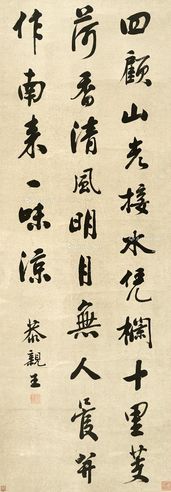 四顧山光接水凭欄十里芰
荷香清風明月無人管并
作南来一味涼
恭親王